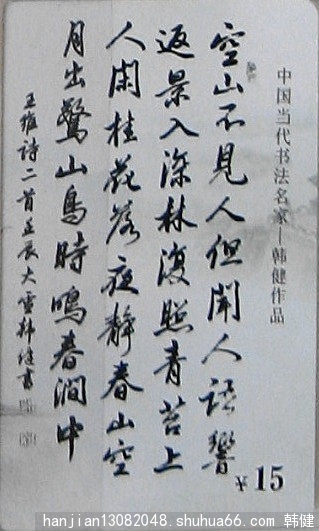 中国当代书法名家—韩健作品
空山不見人但聞人語響
返景入深林復照青苔上
人閑桂花落夜靜春山空
月出驚山鳥時鳴春澗中
王維詩二首壬辰大雪韩健書
¥15
hanjian13082048.shuhua66.com 韩健